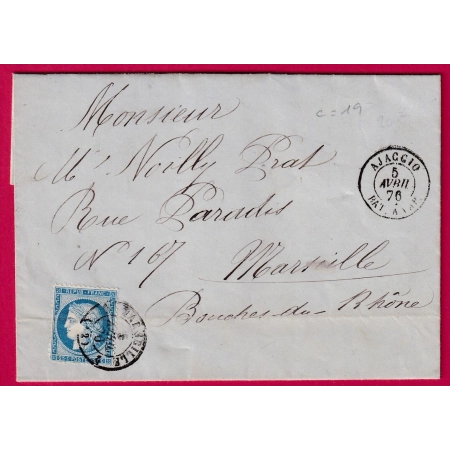 c=19
Monsieur
Mr Noilly Prat
Rue Paradis
N° 167
Marseille
Bouches-du-Rhône
AJACCIO
5
AVRIL
76
BAT. A VAP.
REPUB. FRANC.
25 C. POSTE 25 C.
MARSEILLE